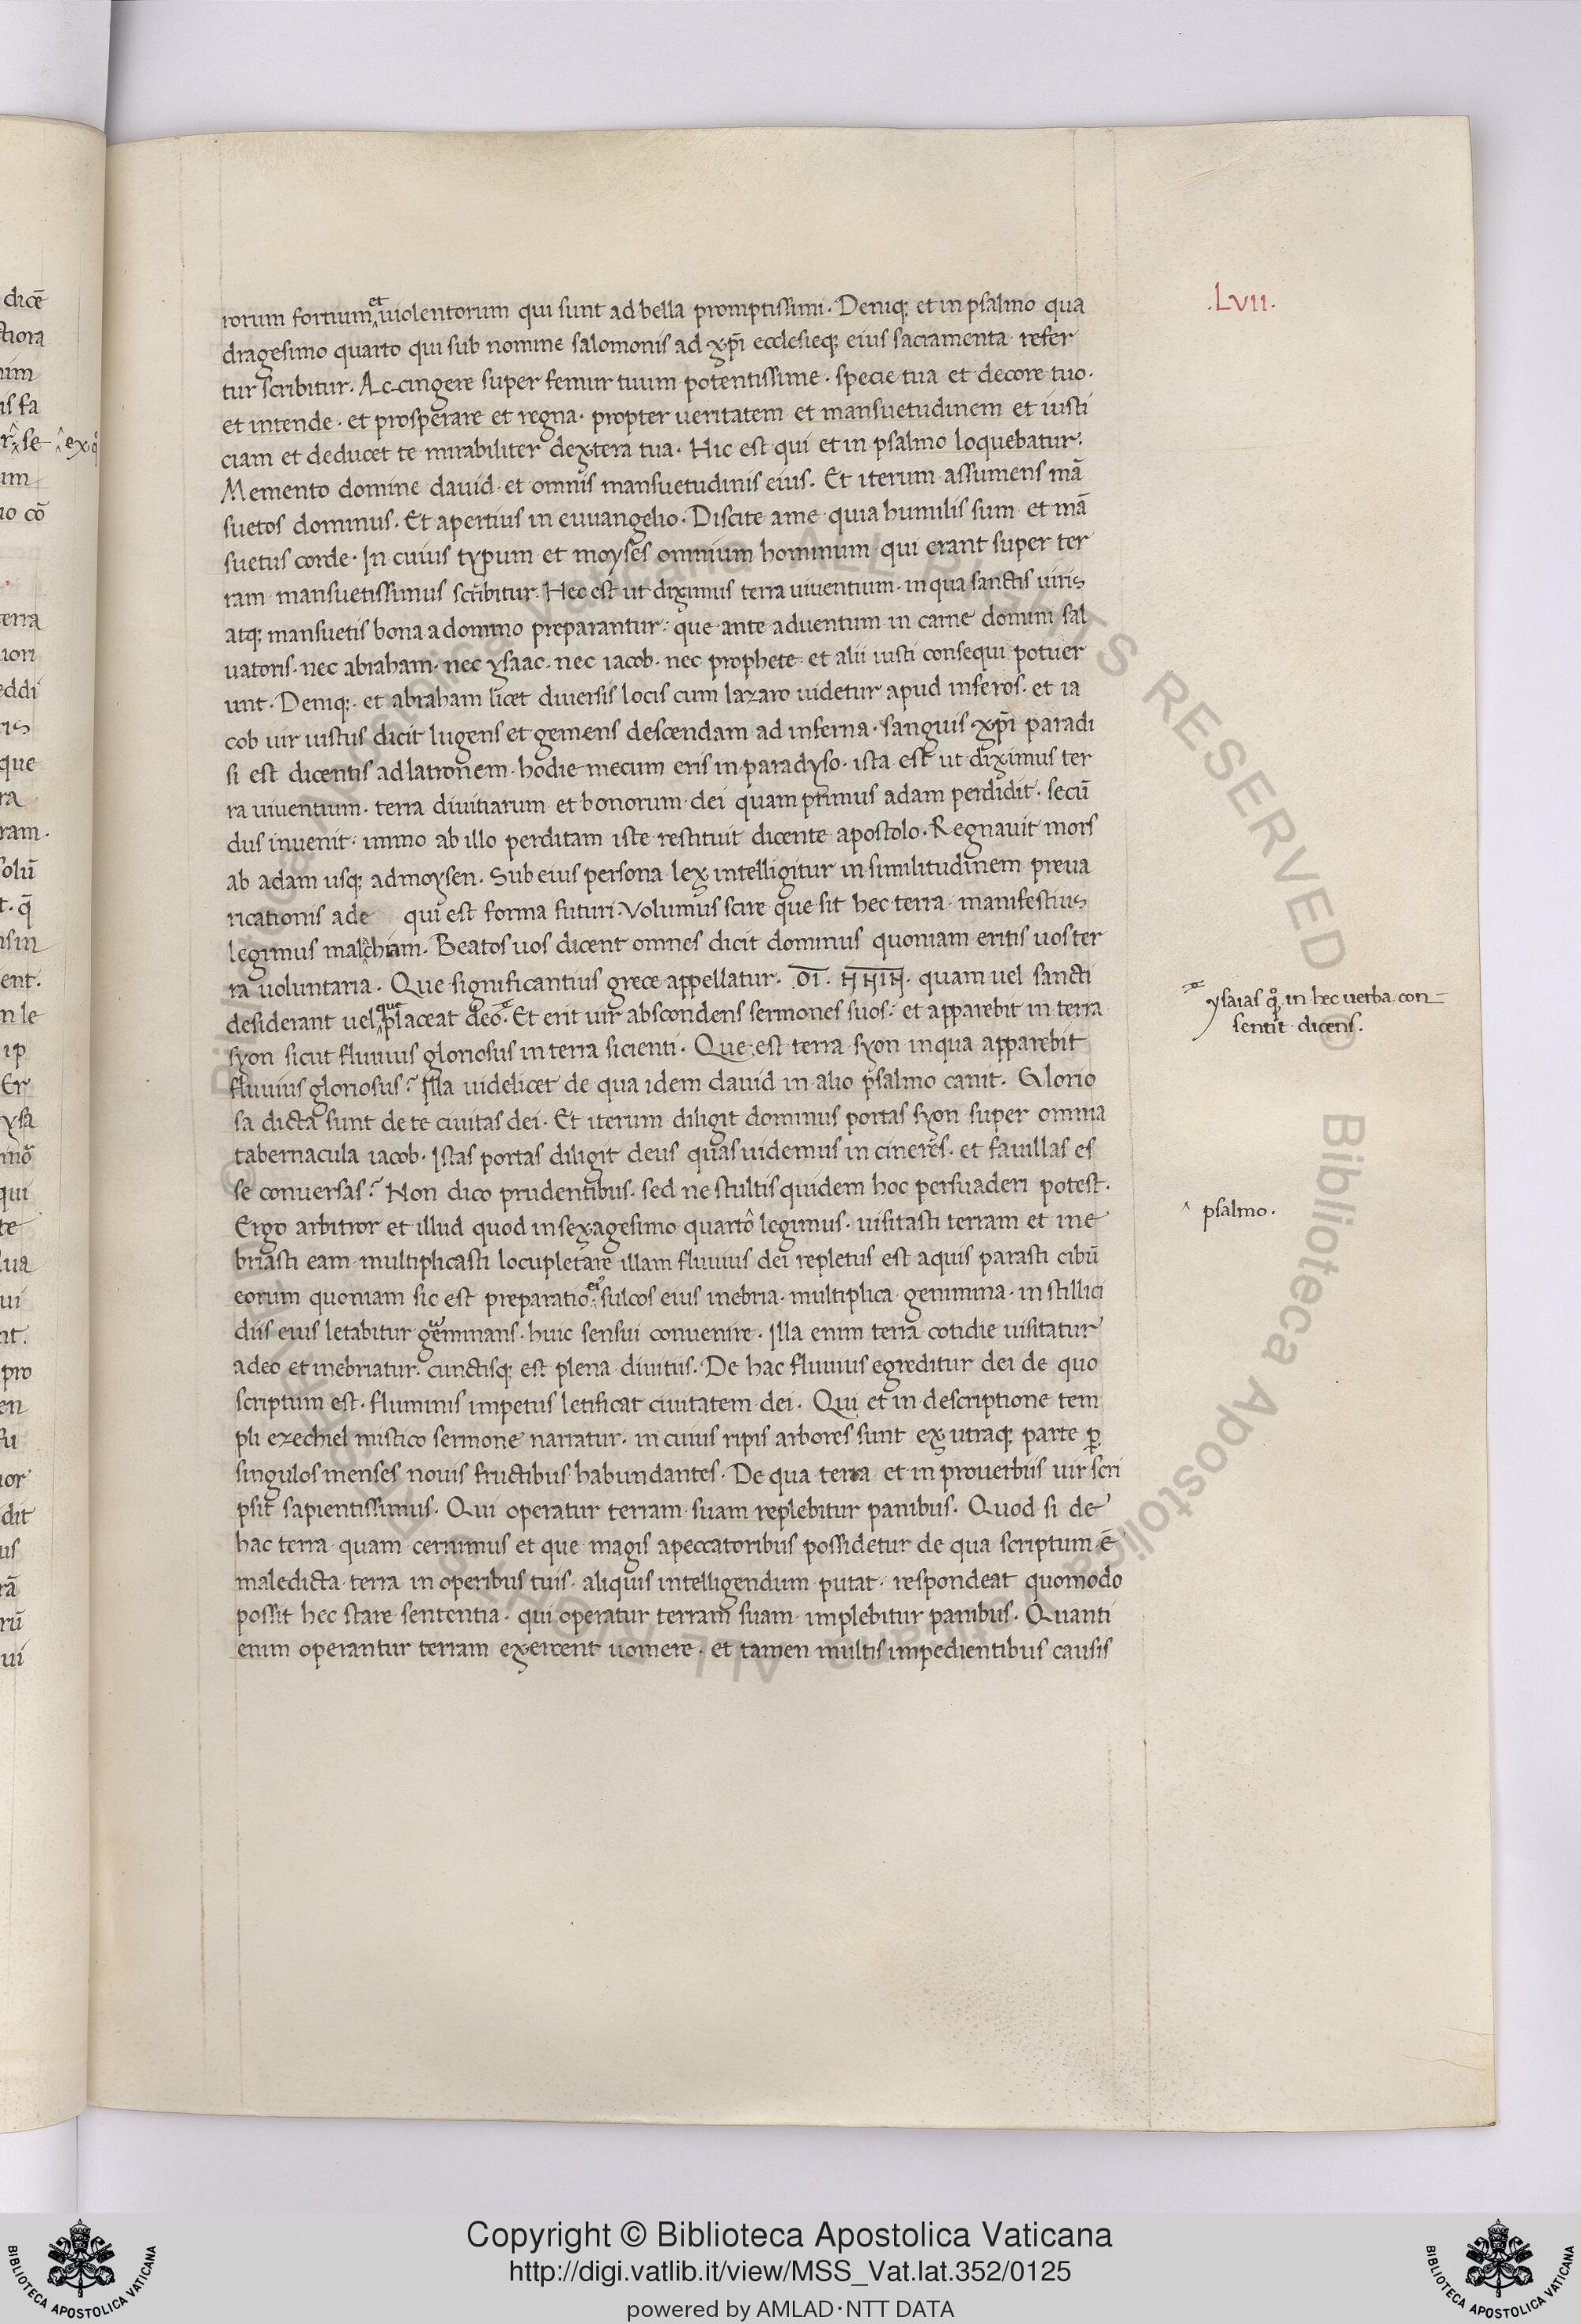 .Lvii.
rorum fortium et uiolentorum qui sunt ad bella promptissimi. Deniq; et in psalmo qua
dragesimo quarto qui sub nomine salomonis ad xp̄i ecclesieq; eius sacramenta refer
tur scribitur. Accingere super femur tuum potentissime. specie tua et decore tuo.
et intende. et prosperare et regna. propter ueritatem et mansuetudinem et iusti
ciam et deducet te mirabiliter dextera tua. Hic est qui et in psalmo loquebatur.
Memento domine dauid et omnis mansuetudinis eius. Et iterum assumens mā
suetos dominus. Et apertius in euuangelio. Discite a me quia humilis sum et mā
suetus corde. In cuius typum et moyses omnium hominum qui erant super ter
ram mansuetissimus scribitur. Hec est ut diximus terra uiuentium. in qua sanctis uiris
atq; mansuetis bona a domino preparantur. que ante aduentum in carne domini sal
uatoris. nec abraham. nec ysaac. nec iacob. nec prophete et alii iusti consequi potuer
unt. Deniq;. et abraham licet diuersis locis cum lazaro uidetur apud inferos. et ia
cob uir iustus dicit lugens et gemens descendam ad inferna. sanguis xp̄i paradi
si est dicentis ad latronem. hodie mecum eris in paradyso. ista est ut diximus ter
ra uiuentium. terra diuitiarum et bonorum dei quam primus adam perdidit. secū
dus inuenit. immo ab illo perditam iste restituit dicente apostolo. Regnauit mors
ab adam usq; ad moysen. Sub eius persona lex intelligitur in similitudinem preua
ricationis ade qui est forma futuri. Volumus scire que sit hec terra manifestius
legimus malchiam. Beatos uos dicent omnes dicit dominus quoniam eritis uos ter
ra uoluntaria. Que significantius grece appellatur. quam uel sancti
desiderant uel que placeat deo. Et erit uir abscondens sermones suos. et apparebit in terra
ysaias q̊ in hec uerba con
sentit dicens.
syon sicut fluuius gloriosus in terra sicienti. Que est terra syon in qua apparebit
fluuius gloriosus? Illa uidelicet de qua idem dauid in alio psalmo canit. Glorio
sa dicta sunt de te ciuitas dei. Et iterum diligit dominus portas syon super omnia
tabernacula iacob. Istas portas diligit deus quas uidemus in cineres. et fauillas es
se conuersas? Non dico prudentibus. sed ne stultis quidem hoc persuaderi potest.
Ergo arbitror et illud quod in sexagesimo quarto legimus. uisitasti terram et ine
psalmo.
briasti eam multiplicasti locupletare illam fluuius dei repletus est aquis parasti cibū
eorum quoniam sic est preparatio ei᾽ sulcos eius inebria. multiplica genimina. in stillici
diis eius letabitur gemmans. huic sensui conuenire. Illa enim terra cotidie uisitatur
a deo et inebriatur. cunctisq; est plena diuitiis. De hac fluuius egreditur dei de quo
scriptum est. fluminis impetus letificat ciuitatem dei. Qui et in descriptione tem
pli ezechiel mistico sermone narratur. in cuius ripis arbores sunt ex utraq; parte ꝑ
singulos menses nouis fructibus habundantes. De qua terra et in prouerbiis uir scri
psit sapientissimus. Qui operatur terram suam replebitur panibus. Quod si de
hac terra quam cernimus et que magis a peccatoribus possidetur de qua scriptum ē
maledicta terra in operibus tuis. aliquis intelligendum putat. respondeat quomodo
possit hec stare sententia. qui operatur terram suam implebitur panibus. Quanti
enim operantur terram exercent uomere. et tamen multis impedientibus causis
Copyright © Biblioteca Apostolica Vaticana
http://digi.vatlib.it/view/MSS_Vat.lat.352/0125
powered by AMLAD·NTT DATA
BIBLIOTECA APOSTOLICA VATICANA
BIBLIOTECA APOSTOLICA VATICANA